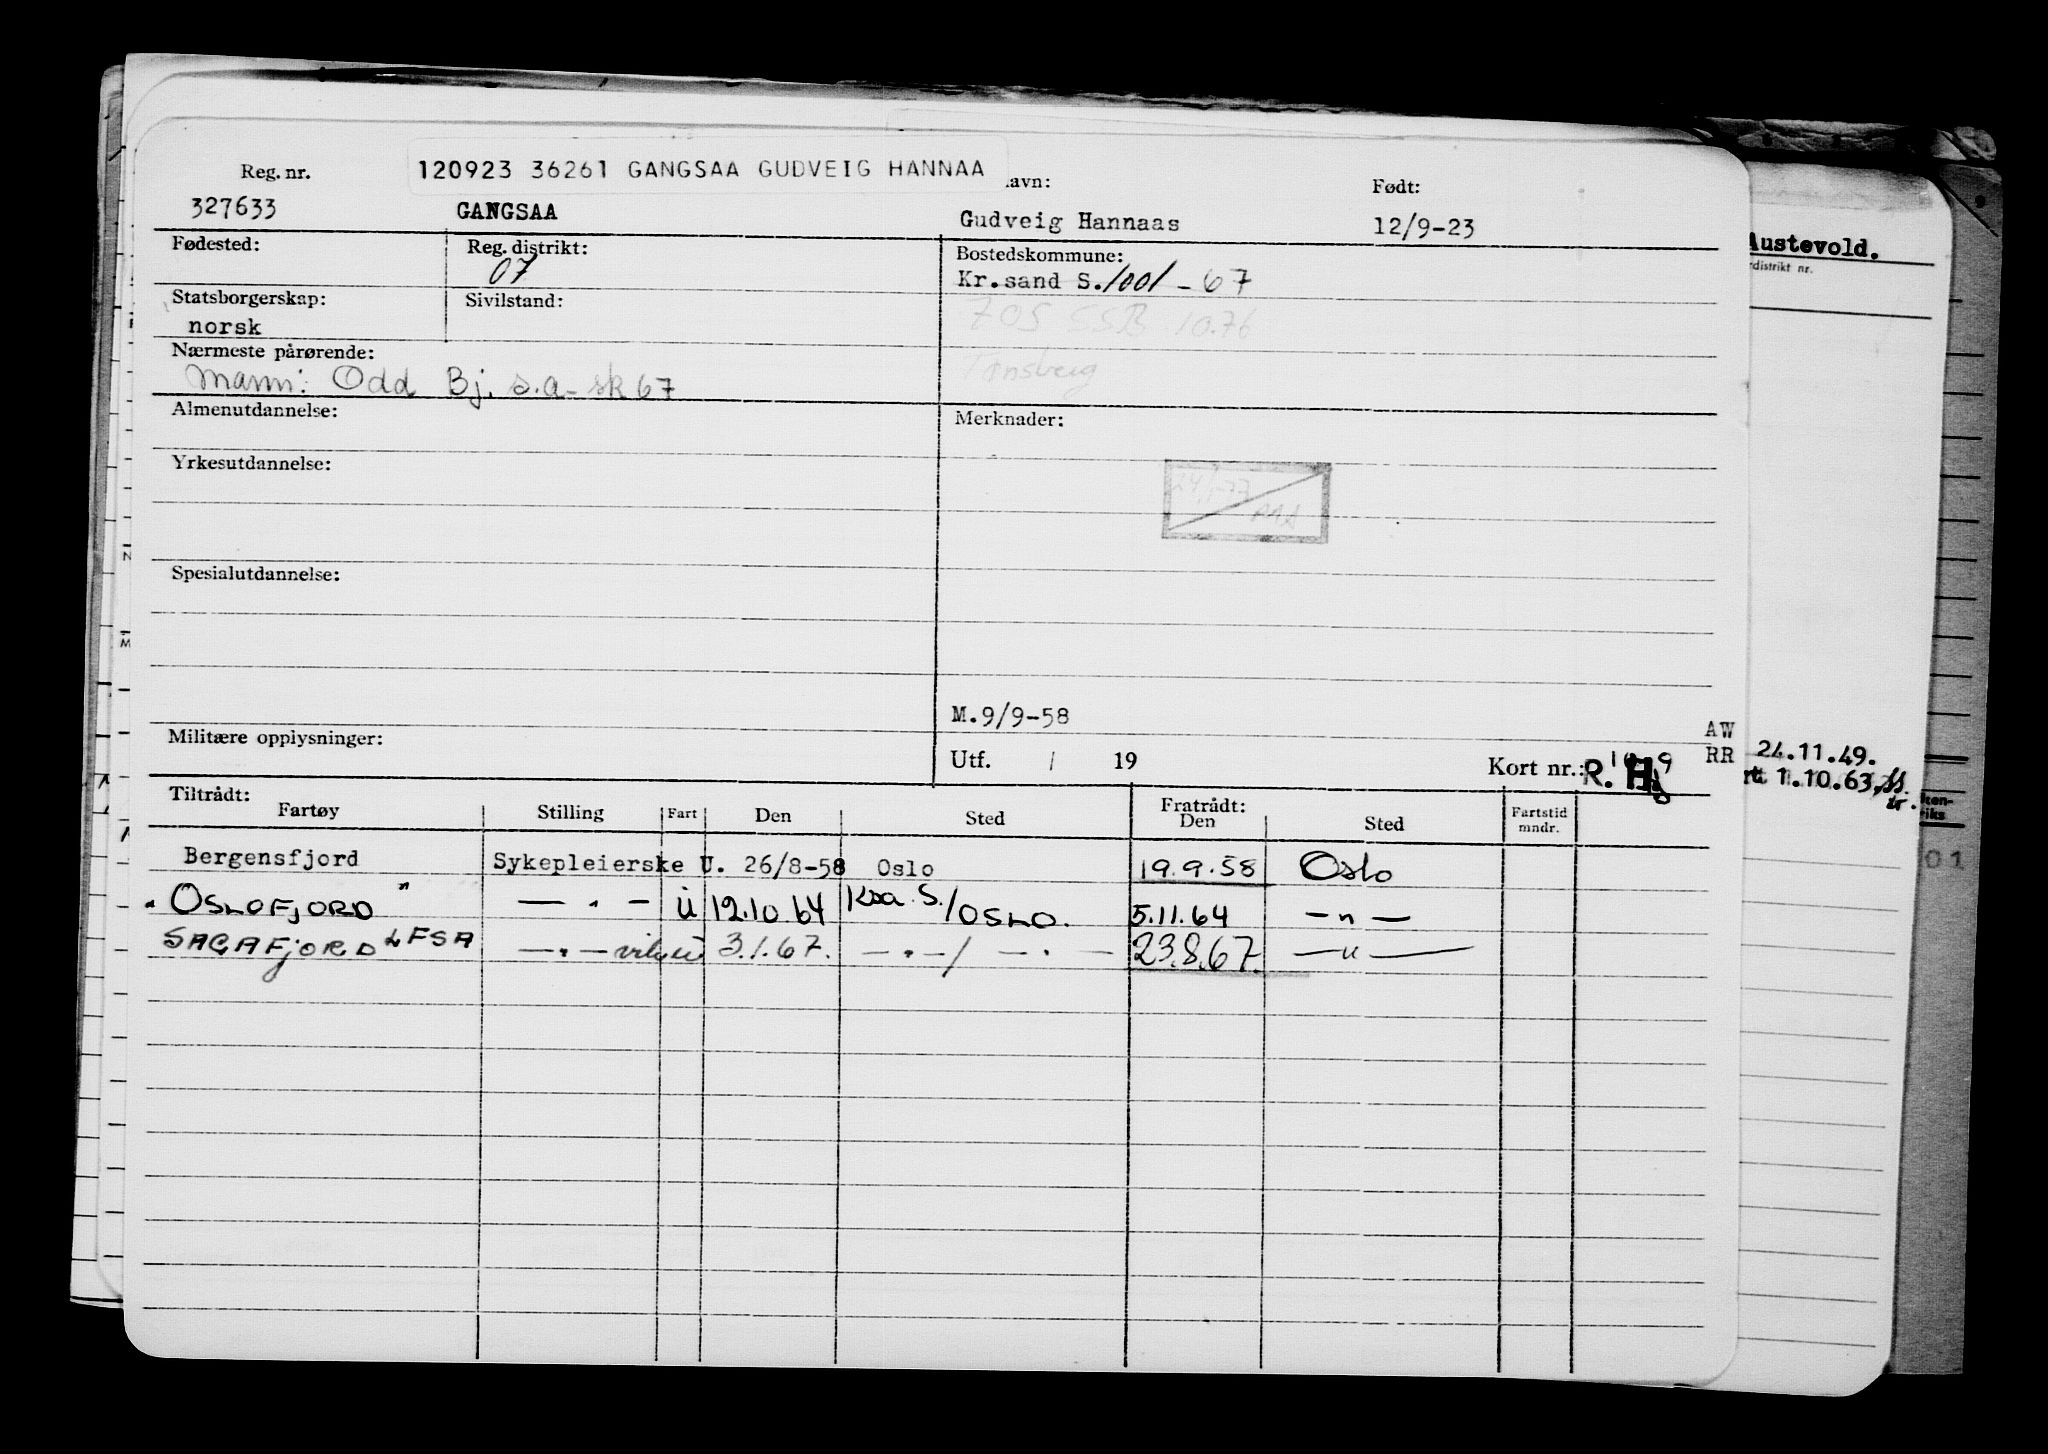 120923 36261 GANGSAA GUDVEIG HANNAA
Reg. nr. avn: Født:
327633 GANGSAA Gudveig Hannaas 12/9-23
Fødested: Reg. distrikt: Bostedskommune:
07 Kr.sand S. 1001 - 67
Statsborgerskap: Sivilstand: 705 SSB 10.76
norsk
Nærmeste pårørende: Tønsberg
Mann: Odd Bj. s.a - sk 67
Almenutdannelse: Merknader:
Yrkesutdannelse:
24/1-77
Spesialutdannelse:
M.9/9-58
Militære opplysninger: Utf. / 19 Kort nr.: R. H
AW
RR
Tiltrådt: Fratrådt:
Fartøy Stilling Fart Den Sted Den Sted Fartstid mndr.
Bergensfjord Sykepleierske U. 26/8-58 Oslo 19.9.58 Oslo
"OSLOFJORD" — " — U 12.10 64 Krsa. S./OSLO. 5.11.64 — " —
SAGAFJORD LFSA — " — 3.1.67. — " — / — " — 23.8.67. — " —
Austevold.
distrikt nr.
24.11.49.
1.10.63
01